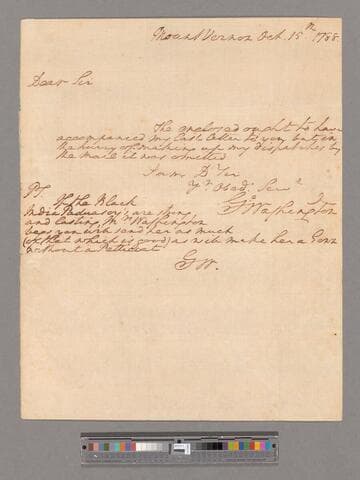 Mount Vernon Oct. 15th 1788
Dear Sir
The enclosed ought to have
accompanied my last letter to you, but in
the hurry of making up my dispatches by
the mail it was omitted
I am Dr Sir
Yr Obed. Servt
Go Washington
PS. If the Black
India are strong
and lasting, Mrs Washington
begs you will send her as much
(of that which is good) as will make her a Gown
without a Petticoat
GW.